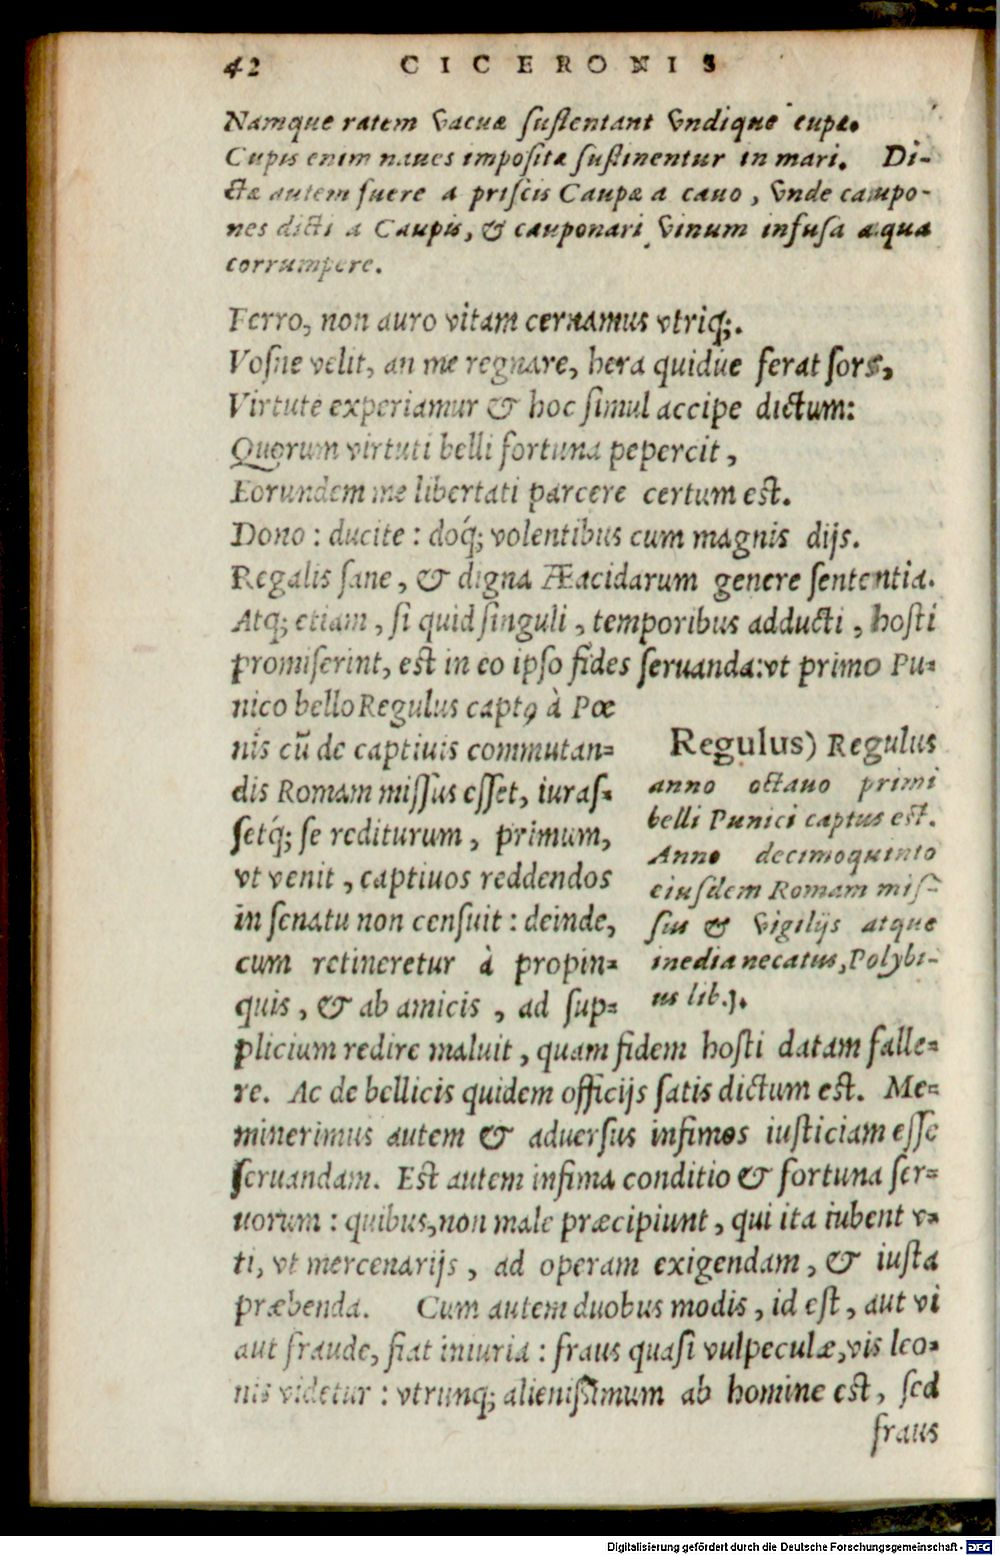 42 CICERONIS
Namque ratem vacuæ sustentant vndique cupæ.
Cupis enim naues impositæ sustinentur in mari. Di-
ctæ autem fuere a priscis Caupæ a cauo, vnde caupo-
nes dicti a Caupis, & cauponari vinum infusa aqua
corrumpere.
Ferro, non auro vitam cernamus vtriq;.
Vosne velit, an me regnare, hera quidue ferat fors,
Virtute experiamur & hoc simul accipe dictum:
Quorum virtuti belli fortuna pepercit,
Eorundem me libertati parcere certum est.
Dono: ducite: doq́; volentibus cum magnis dijs.
Regalis sane, & digna Æacidarum genere sententia.
Atq; etiam, si quid singuli, temporibus adducti, hosti
promiserint, est in eo ipso fides seruanda: vt primo Pu-
nico bello Regulus captꝰ à Pœ
nis cũ de captiuis commutan-
dis Romam missus esset, iuras-
setq́; se rediturum, primum,
vt venit, captiuos reddendos
in senatu non censuit: deinde,
cum retineretur à propin-
quis, & ab amicis, ad sup-
Regulus) Regulus
anno octauo primi
belli Punici captus est.
Anno decimoquinto
eiusdem Romam mis-
sus & vigilijs atque
inedia necatus, Polybi-
us lib.j.
plicium redire maluit, quam fidem hosti datam falle-
re. Ac de bellicis quidem officijs satis dictum est. Me-
minerimus autem & aduersus infimos iusticiam esse
seruandam. Est autem infima conditio & fortuna ser-
uorum: quibus, non male præcipiunt, qui ita iubent v-
ti, vt mercenarijs, ad operam exigendam, & iusta
præbenda. Cum autem duobus modis, id est, aut vi
aut fraude, fiat iniuria: fraus quasi vulpeculæ, vis leo-
nis videtur: vtrunq; alienissimum ab homine est, sed
fraus
Digitalisierung gefördert durch die Deutsche Forschungsgemeinschaft - DFG